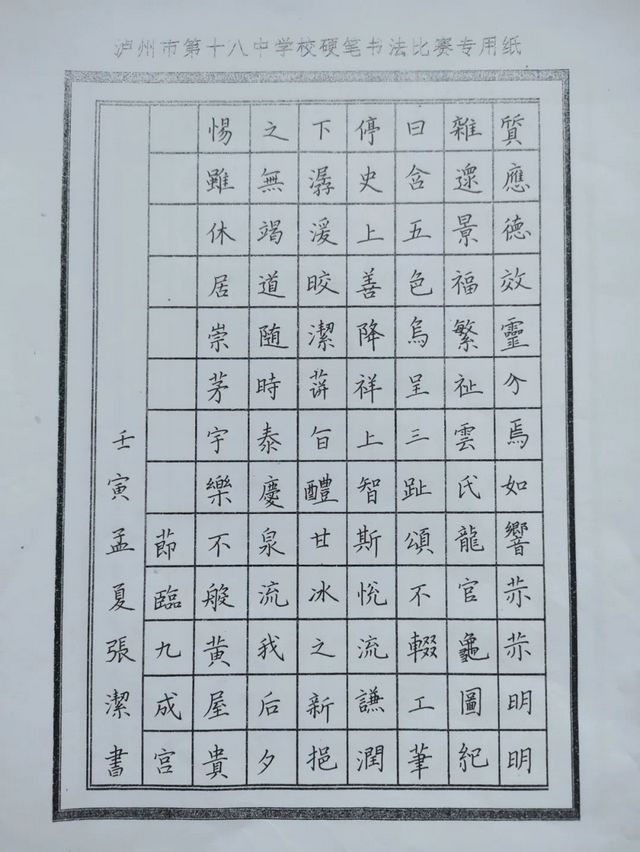 泸州市第十八中学校硬笔书法比赛专用纸
質應德效靈兮焉如響赫赫明明
雜遝景福繁祉雲氏龍官龜圖紀
曰含五色烏呈三趾頌不輟工筆
停史上善降祥上智斯悅流謙潤
下潺湲皎潔蓱旨醴甘冰之新挹
之無竭道随時泰慶泉流我后夕
惕雖休居崇茅宇樂不般黃屋貴
節臨九成宮
壬寅孟夏張潔書